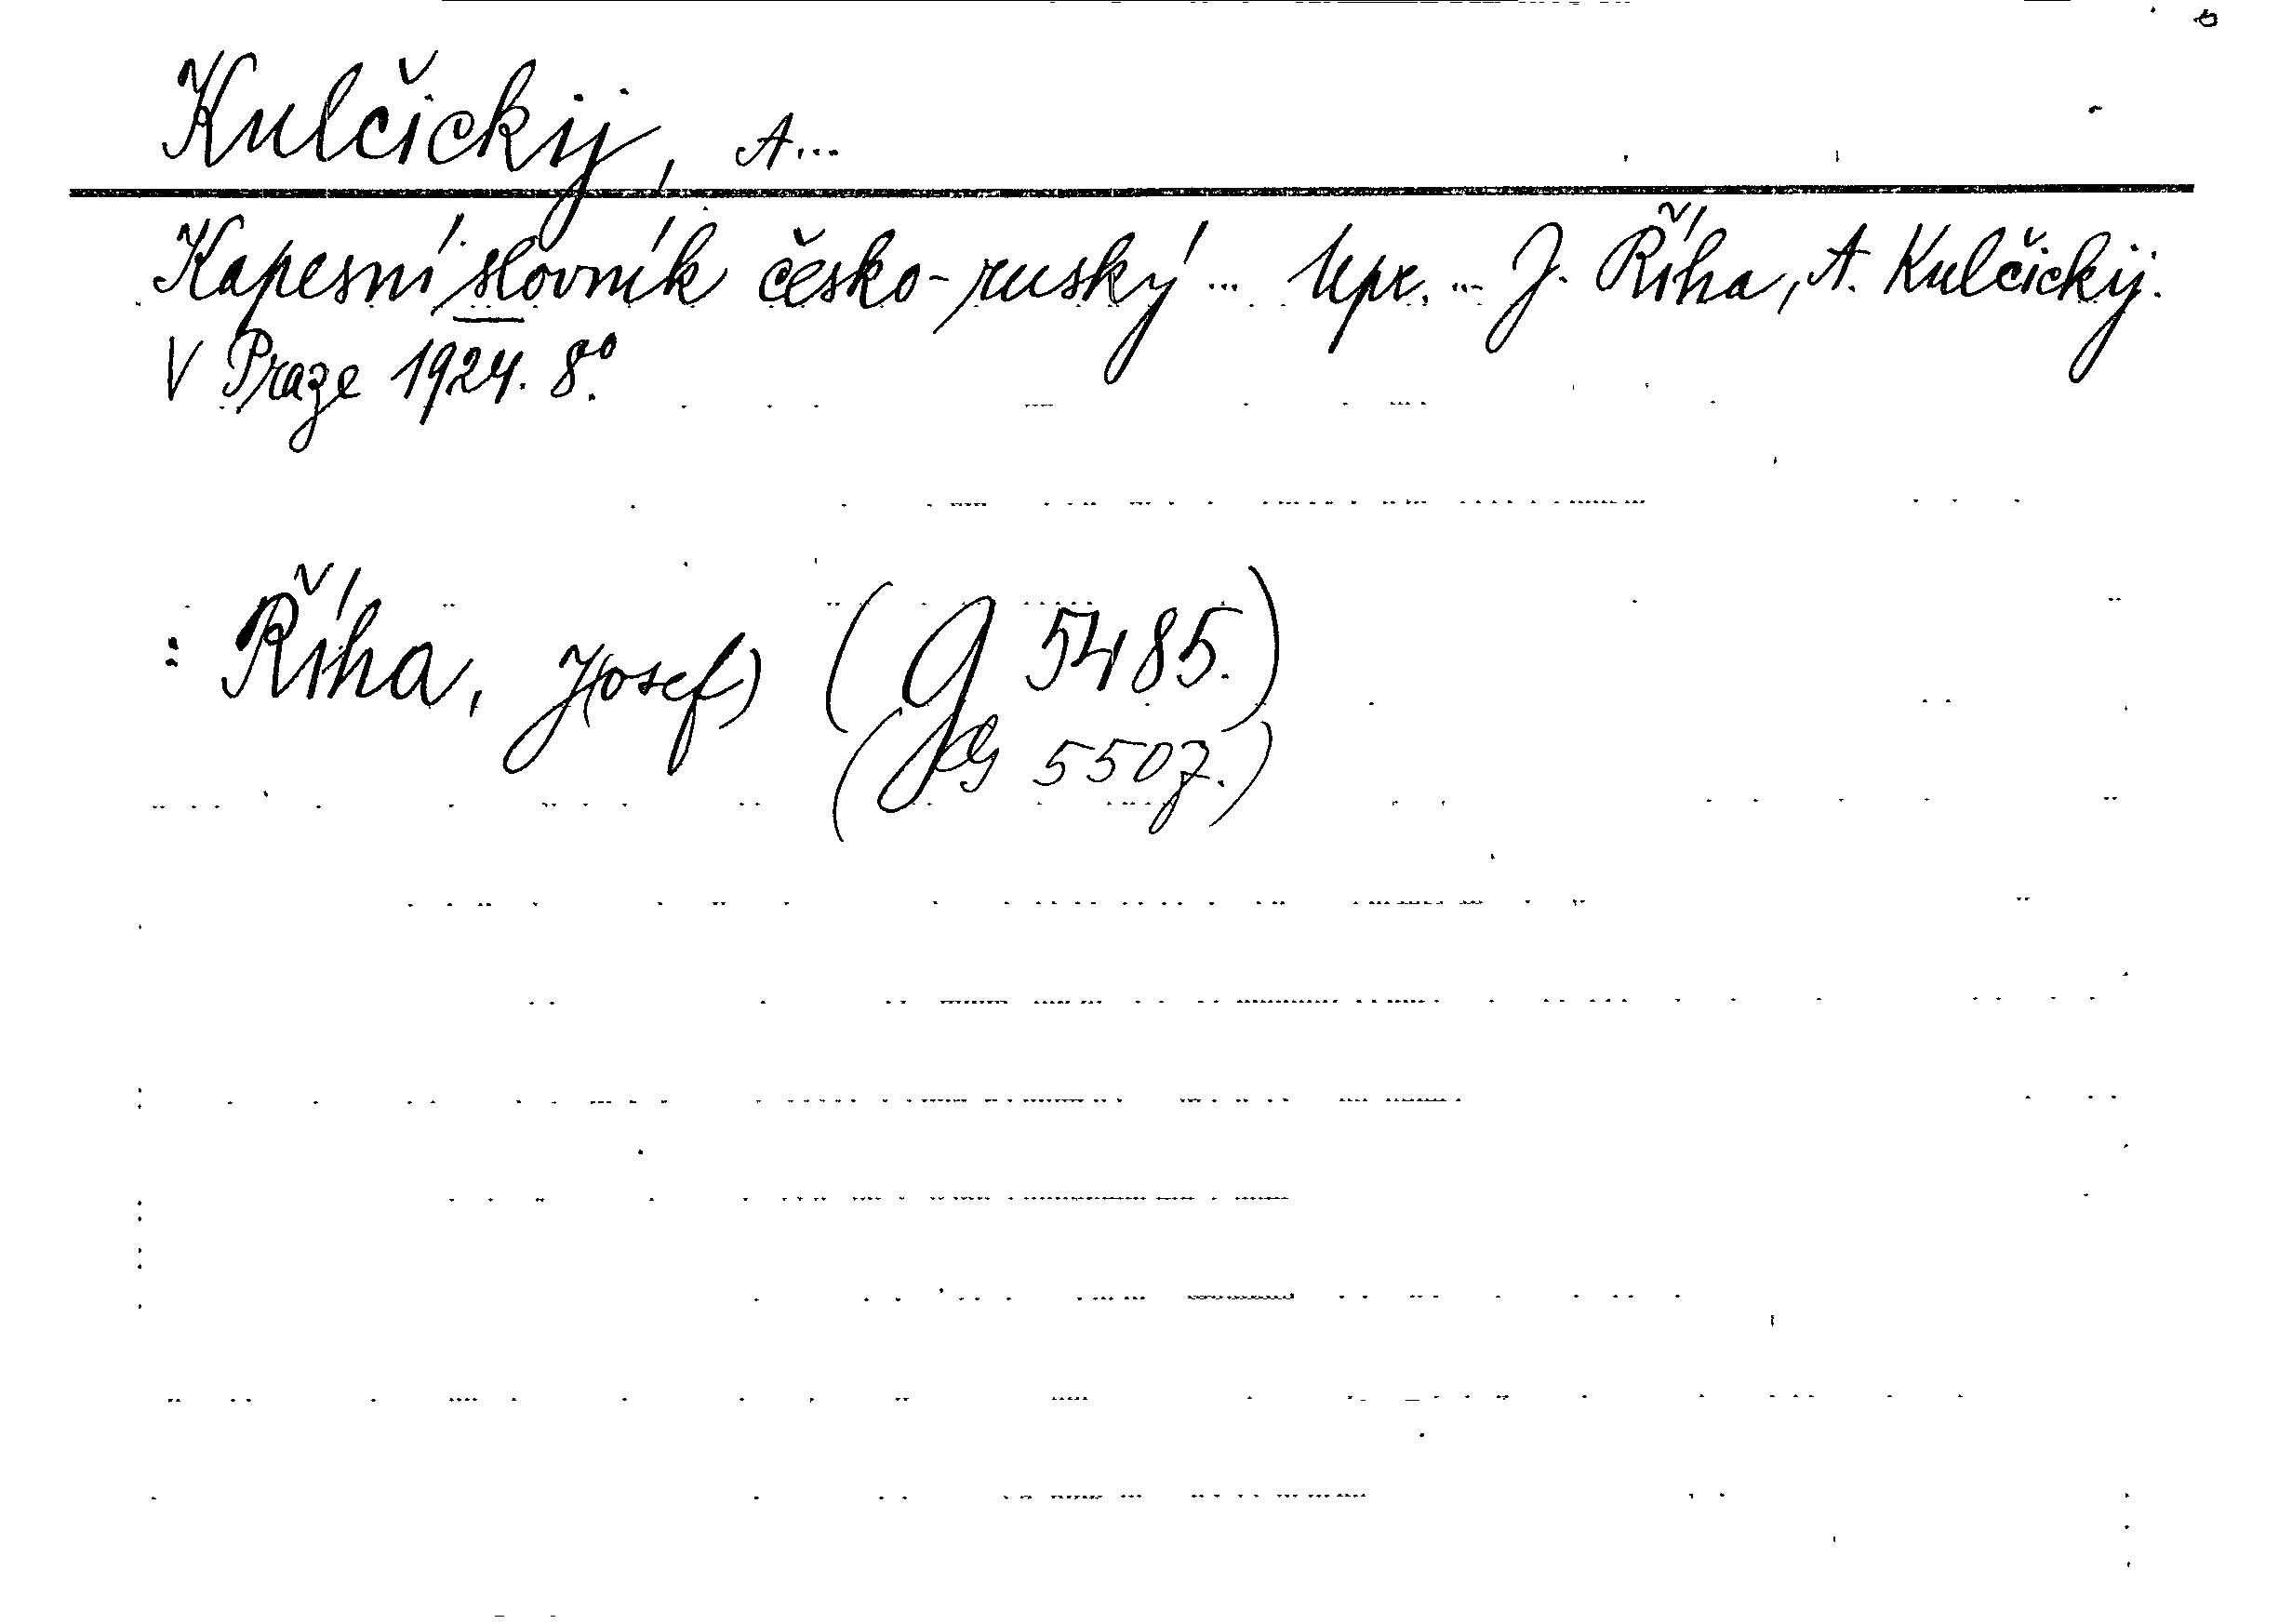 Kulčickij, A...
Kapesní slovník česko-ruský ... Upr. ... J. Říha, A. Kulčickij.
V Praze 1924. 8°.
: Říha, J(osef) (g 5485.)
5507.)